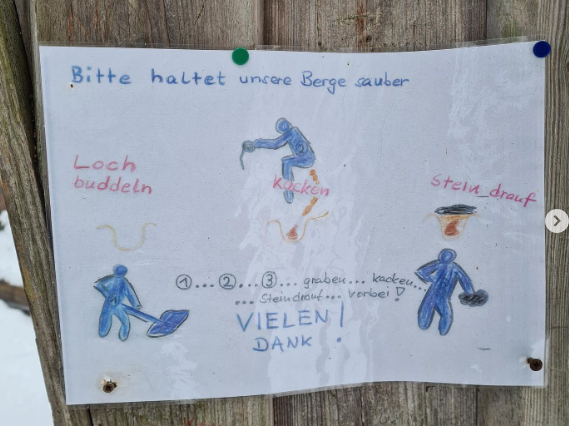 Bitte haltet unsere Berge sauber
Loch
buddeln
Kacken
Stein drauf
①...②...③... graben... kacken...
... Steindrauf... vorbei!
VIELEN
DANK !